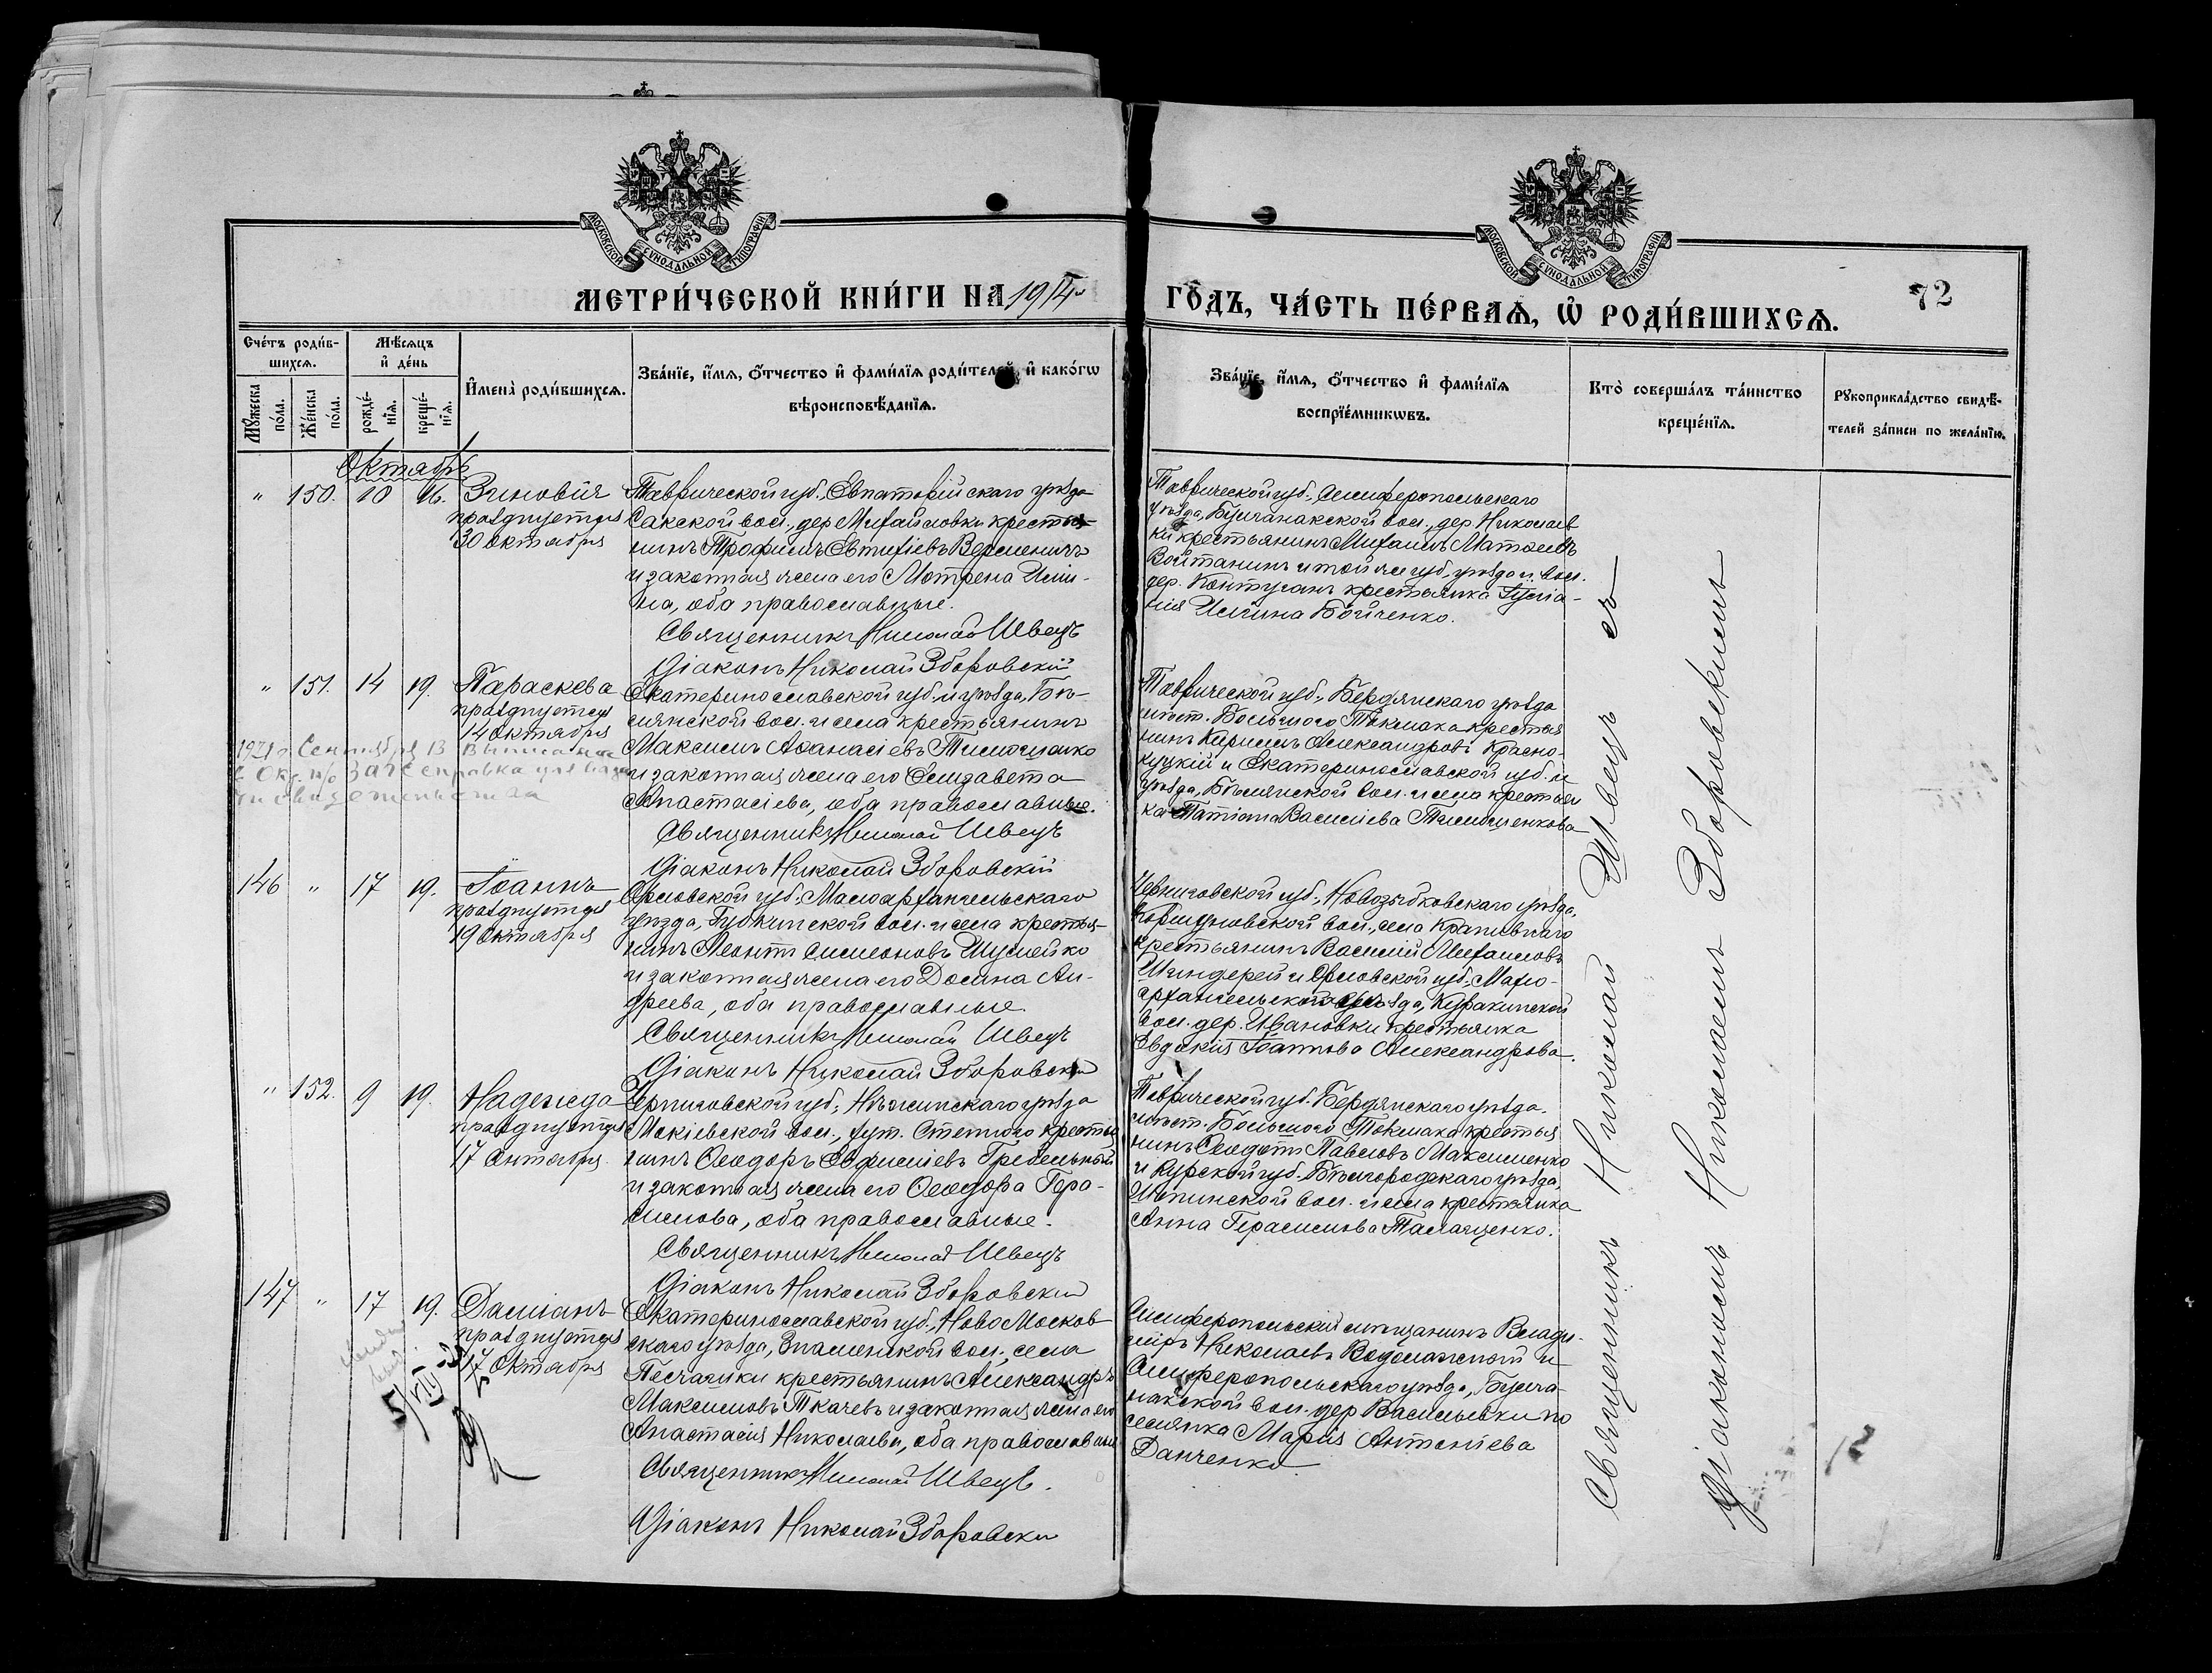 МОСКОВСКОЙ СѴНОДАЛЬНОЙ ТИПОГРАФІИ
МОСКОВСКОЙ СѴНОДАЛЬНОЙ ТИПОГРАФІИ
МЕТРИ́ЧЕСКОЙ КНИ́ГИ НА 1914
ГО́ДЪ, ЧА́СТЬ ПЕ́РВАѦ, Ѡ҆ РОДИ́ВШИХСѦ.
72
Сче́тъ роди́в-
шихсѧ.
Мѣ́сѧцъ
и҆ де́нь
Мꙋжеска по́ла.
Же́нска по́ла.
рожде́нїѧ.
креще́нїѧ.
И҆мена̀ роди́вшихсѧ.
Зва́нїе, и҆́мѧ, ѻ҆́тчество и҆ фами́лїѧ роди́телей, и҆ како́гѡ
вѣроисповѣ́данїѧ.
Зва́нїе, и҆́мѧ, ѻ҆́тчество и҆ фами́лїѧ
воспрїе́мникѡвъ.
Кто̀ соверша́лъ та́инство
креще́нїѧ.
Рꙋкоприкла́дство свидѣ́-
телей за́писи по жела́нїю.
Октябрь
" 150. 10 16. Зиновія
празднуется
30 октября
Таврической губ., Евпаторійскаго уѣзда
Сакской вол., дер Михайловки крестья-
нинъ Трофимъ Евтихіевъ
и законная жена его Мотрена
на, оба православные.
Священникъ Николай Швецъ
Діаконъ Николай Зборовскій
Таврической губ., Симферопольскаго
уѣзда, Булганакской вол., дер. Николаев-
ки крестьянинъ Михаилъ
Войтанинъ и той же губ., уѣзда и вол.
дер. Контуганъ крестьянка
Бойченко.
" 151. 14 19. Параскева
празднуется
14 октября
Екатеринославской губ. и уѣзда, Бѣ-
лянской вол. и села крестьянинъ
Максимъ Аѳанасіевъ Тимошенко
и законная жена его Елизавета
Анастасіева, оба православные.
Священникъ Николай Швецъ
Діаконъ Николай Зборовскій
Таврической губ., Бердянскаго уѣзда
мѣст. Большого Токмака крестья
нинъ Кириллъ Александровъ Красно-
куцкій и Екатеринославской губ. и
уѣзда, Бѣлянской вол. и села крестьян
ка Татіана Василіева Тимошенкова
Сентября 13
ЗАГС справка
146 " 17 19. Іоаннъ
празднуется
19 октября
Орловской губ., Малоархангельскаго
уѣзда, Губкинской вол. и села крестья-
нинъ Леонтій Симеоновъ Шумейко
и законная жена его Домна Ан-
дреева, оба православные
Священникъ Николай Швецъ
Діаконъ Николай Зборовскій
Черниговской губ., Новозыбковскаго уѣзда,
вол., села
крестьянинъ Василій Михаиловъ
и Орловской губ., Мало-
архангельскаго уѣзда, Куракинской
вол. дер. Ивановки крестьянка
Евдокія Іоаннова Александрова.
" 152. 9 19. Надежда
празднуется
17 Октября
Черниговской губ., Нѣжинскаго уѣзда
Мокіевской вол., хут. Степного крестья
нинъ Ѳеодоръ Евфиміевъ Гребельный
и законная жена его Ѳеодора Гера-
симова, оба православные.
Священникъ Николай Швецъ
Діаконъ Николай Зборовскій
Таврической губ. Бердянскаго уѣзда.
мѣст. Большого Токмака крестья
нинъ Ѳеодотъ Павловъ Максименко
и Курской губ. Бѣлгородскаго уѣзда,
вол. и села крестьянка
Анна Герасимова
147 " 17 19. Даміанъ
празднуется
17 Октября
Екатеринославской губ., НовоМосков
скаго уѣзда, Знаменской вол., села
Песчанки крестьянинъ Александръ
Максимовъ Ткачевъ и законная жена его
Анастасія Николаева, оба православные
Священникъ Николай Швецъ.
Діаконъ Николай Зборовскій
Симферопольскій мѣщанинъ Влади-
міръ Николаевъ и
Симферопольскаго уѣзда, Булга-
накской вол. дер Васильевки по
селянка Марія Антоніева
Данченко
Священникъ Николай Швецъ съ
Діакономъ Николаемъ Зборовскимъ
12